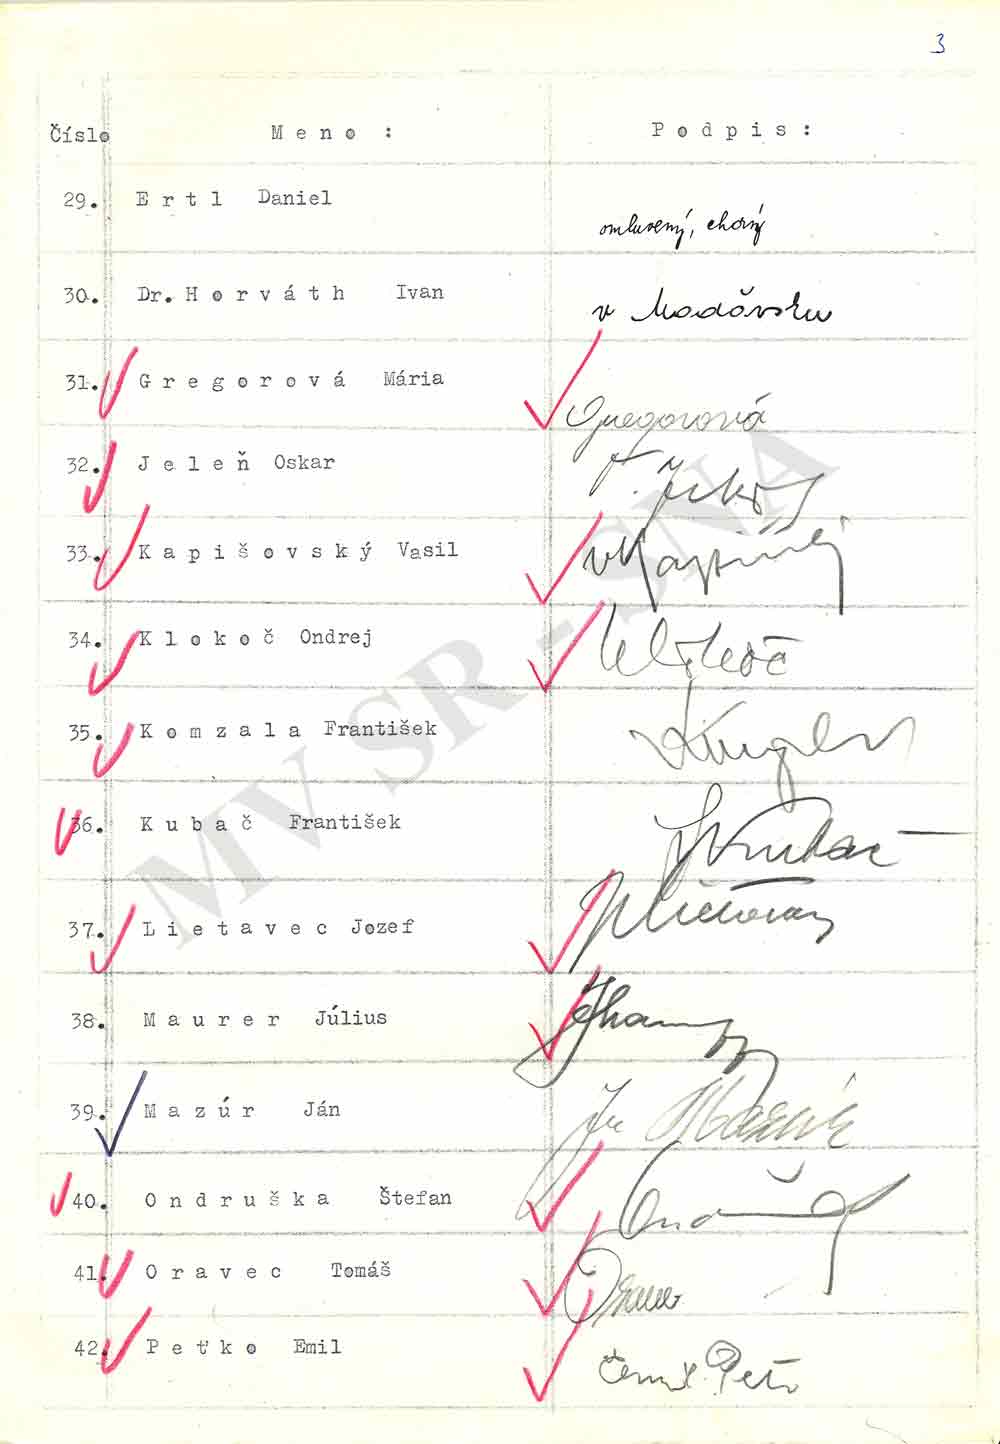 3
Číslo Meno: Podpis:
29. Ertl Daniel
omluvený, chorý
30. Dr. Horváth Ivan
v Maďarsku
31. Gregorová Mária
Gregorová
32. Jeleň Oskar
33. Kapišovský Vasil
34. Klokoč Ondrej
Klokoč
35. Komzala František
36. Kubač František
Kubač
37. Lietavec Jozef
Lietavec
38. Maurer Július
39. Mazúr Ján
40. Ondruška Štefan
41. Oravec Tomáš
42. Peťko Emil
MV SR - SNA